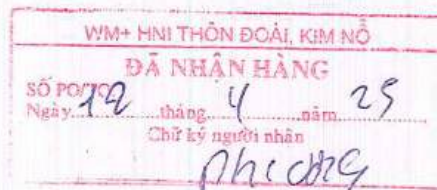 WM+ HNI THÔN ĐOÀI, KIM NỖ
ĐÃ NHẬN HÀNG
SỐ PO/TO
Ngày 12 tháng 4 năm 25
Chữ ký người nhân
Phương